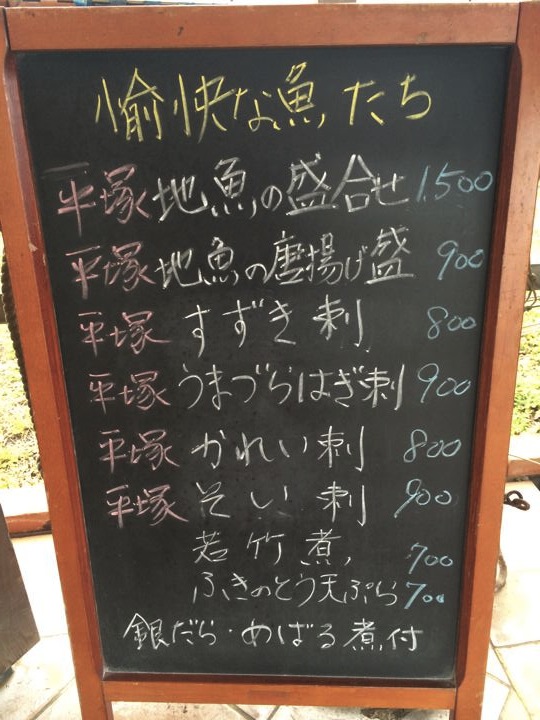 愉快な魚たち
平塚地魚の盛合せ 1,500
平塚地魚の唐揚げ盛 900
平塚 すずき刺 800
平塚 うまづらはぎ刺 900
平塚 かれい刺 800
平塚 そい刺 900
若竹煮 700
ふきのとう天ぷら 700
銀だら・めばる煮付